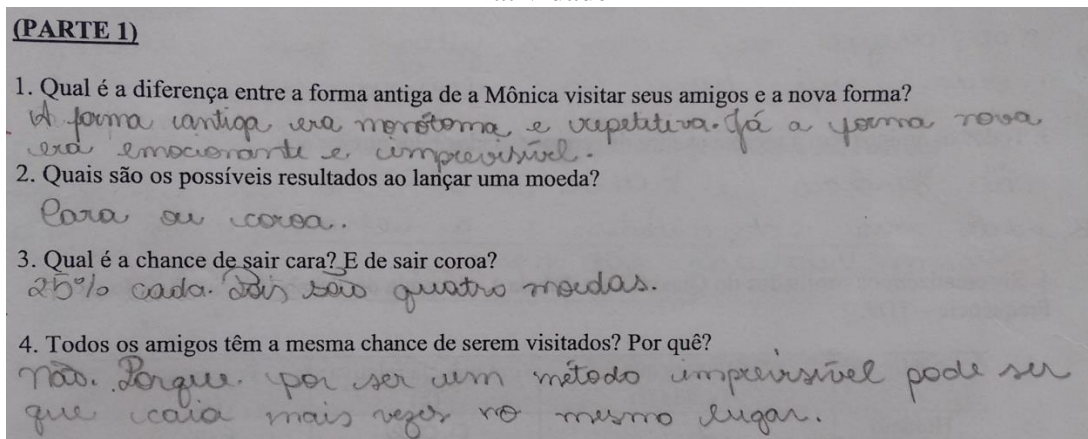 (PARTE 1)
1. Qual é a diferença entre a forma antiga de a Mônica visitar seus amigos e a nova forma?
A forma antiga era monótoma e repetitiva. Já a forma nova
era emocionante e imprevisível.
2. Quais são os possíveis resultados ao lançar uma moeda?
Cara ou coroa.
3. Qual é a chance de sair cara? E de sair coroa?
25% cada. Pois são quatro moedas.
4. Todos os amigos têm a mesma chance de serem visitados? Por quê?
Não. Porque por ser um método imprevisível pode ser
que caia mais vezes no mesmo lugar.